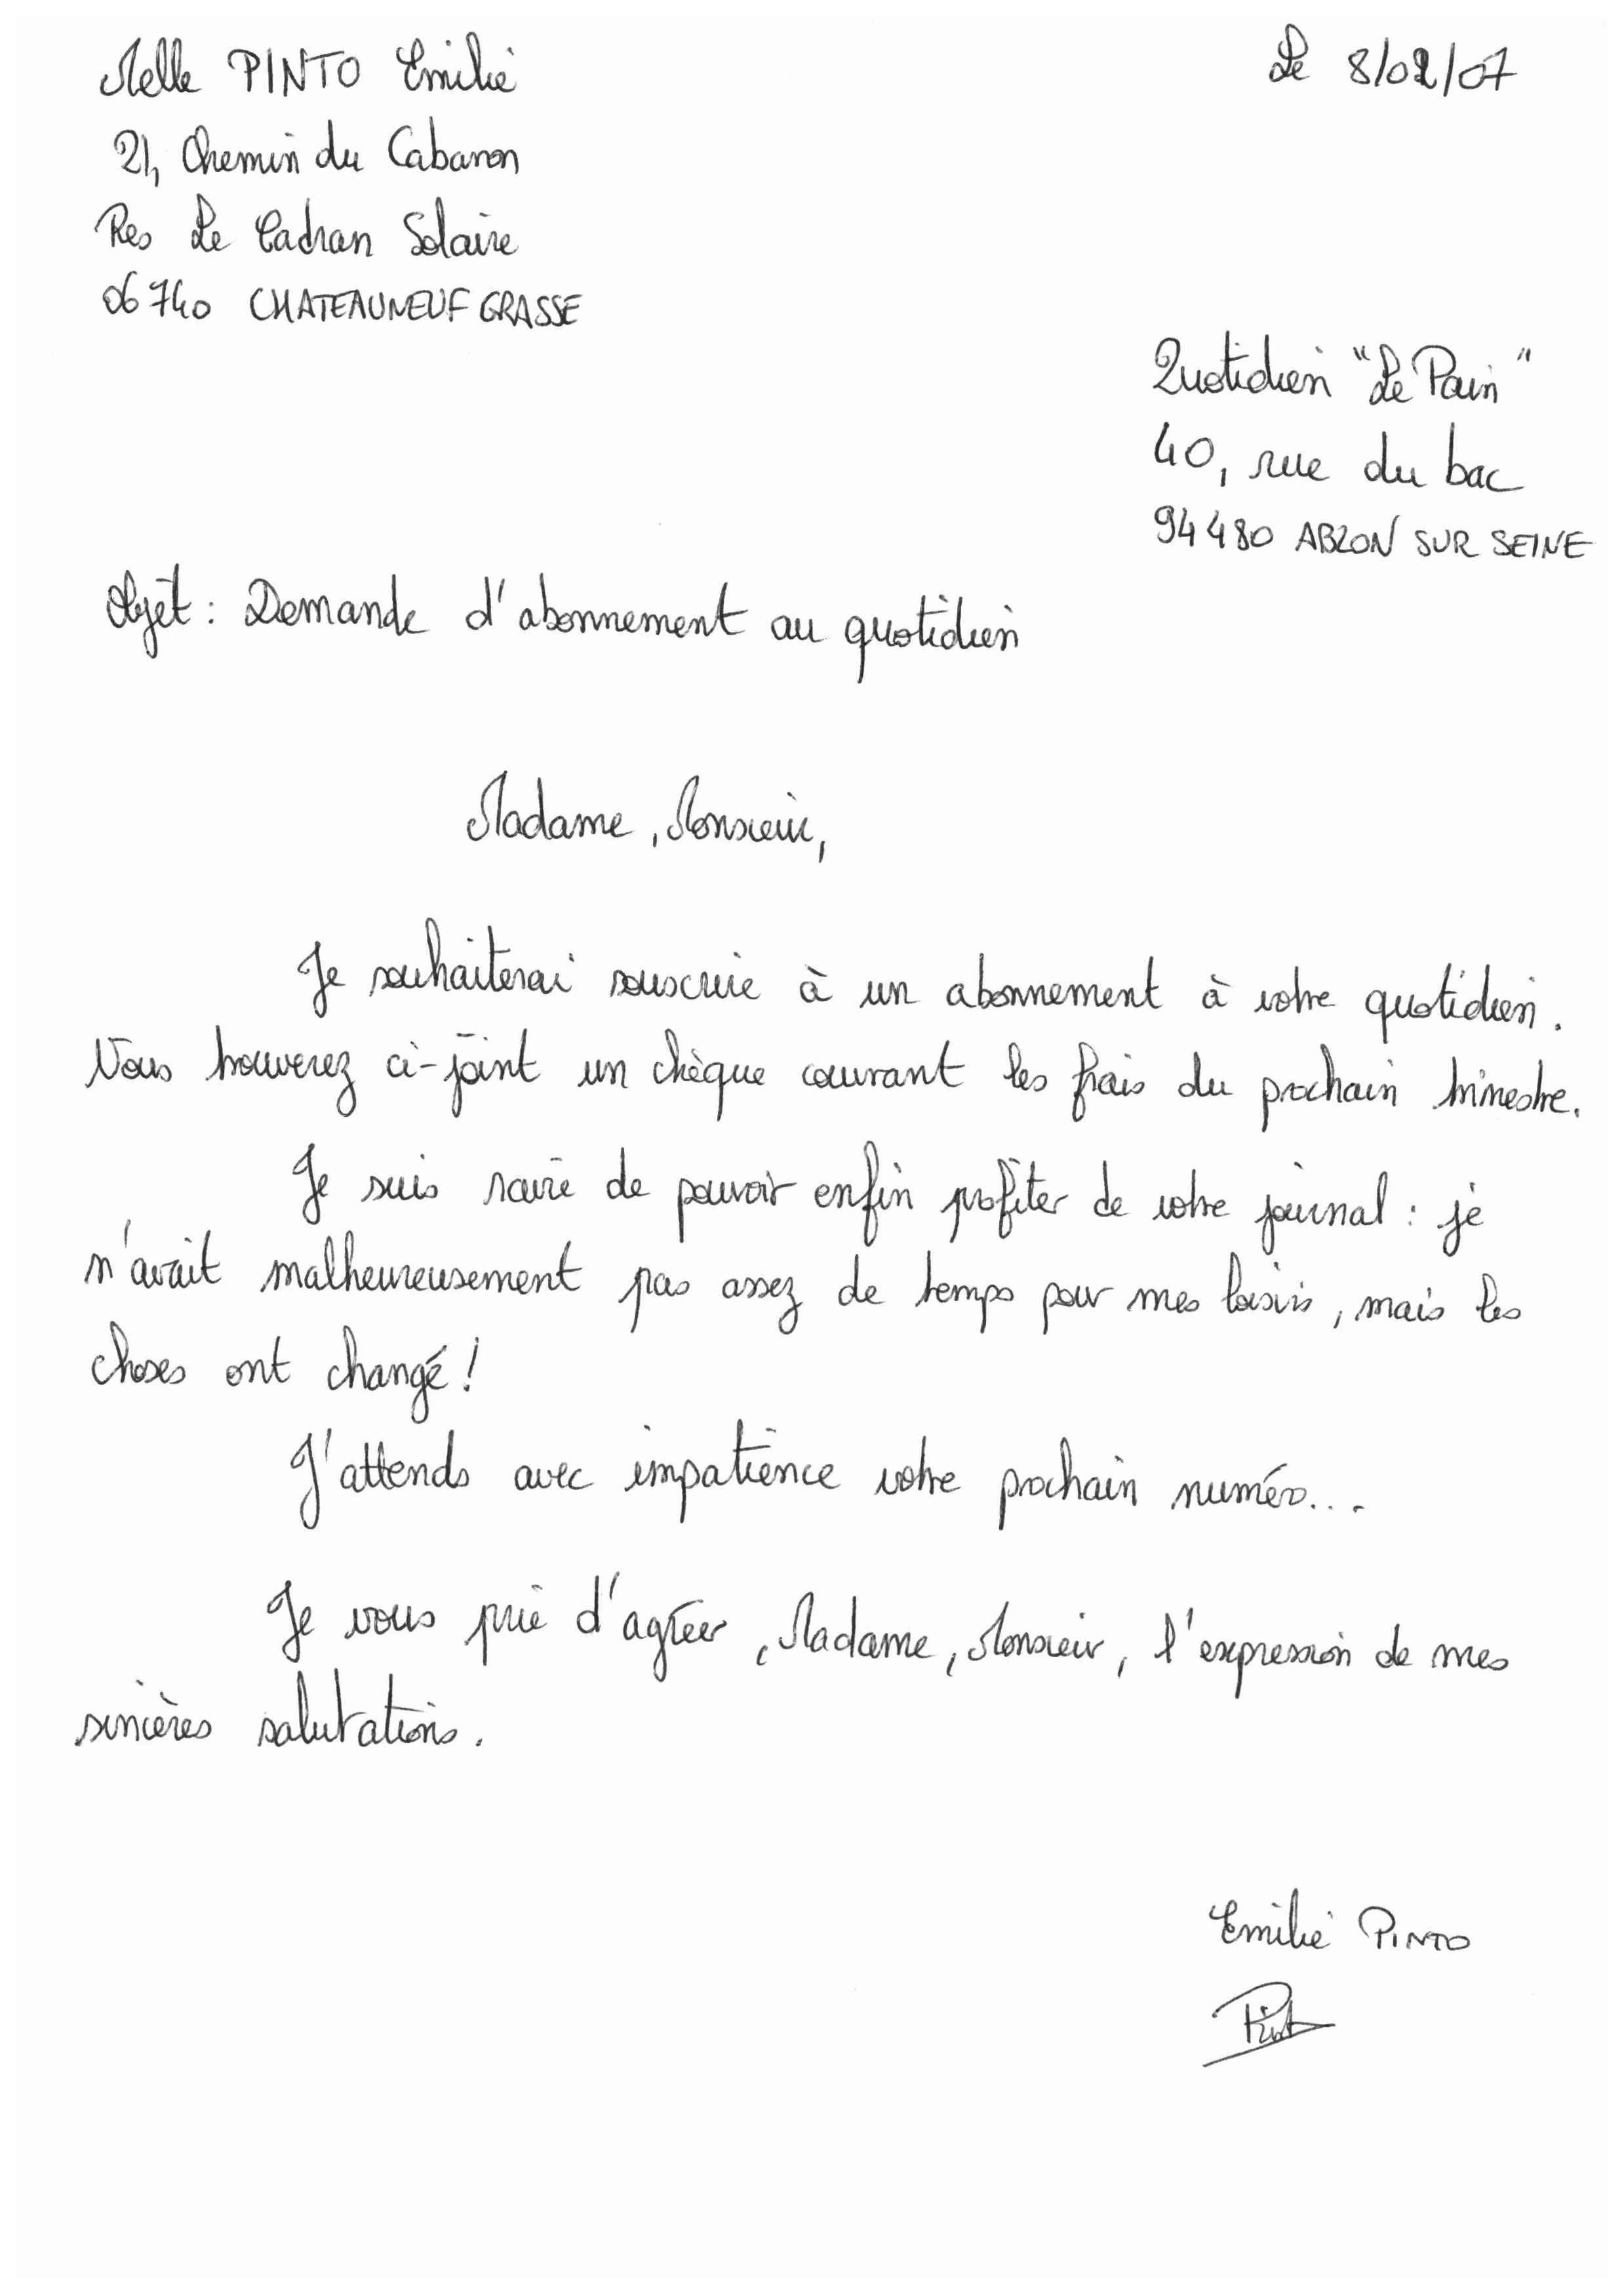 Melle PINTO Emilie
Le 8/02/07
21, Chemin du Cabanon
Res Le Cadran Solaire
06740 CHATEAUNEUF GRASSE
Quotidien "Le Pain"
40, rue du bac
94480 ABLON SUR SEINE
Objet : Demande d'abonnement au quotidien
Madame, Monsieur,
Je souhaiterai souscrire à un abonnement à votre quotidien.
Vous trouverez ci-joint un chèque couvrant les frais du prochain trimestre.
Je suis ravie de pouvoir enfin profiter de votre journal : je
n'avait malheureusement pas assez de temps pour mes loisirs, mais les
choses ont changé !
J'attends avec impatience votre prochain numéro...
Je vous prie d'agréer, Madame, Monsieur, l'expression de mes
sincères salutations.
Emilie PINTO
Pinto